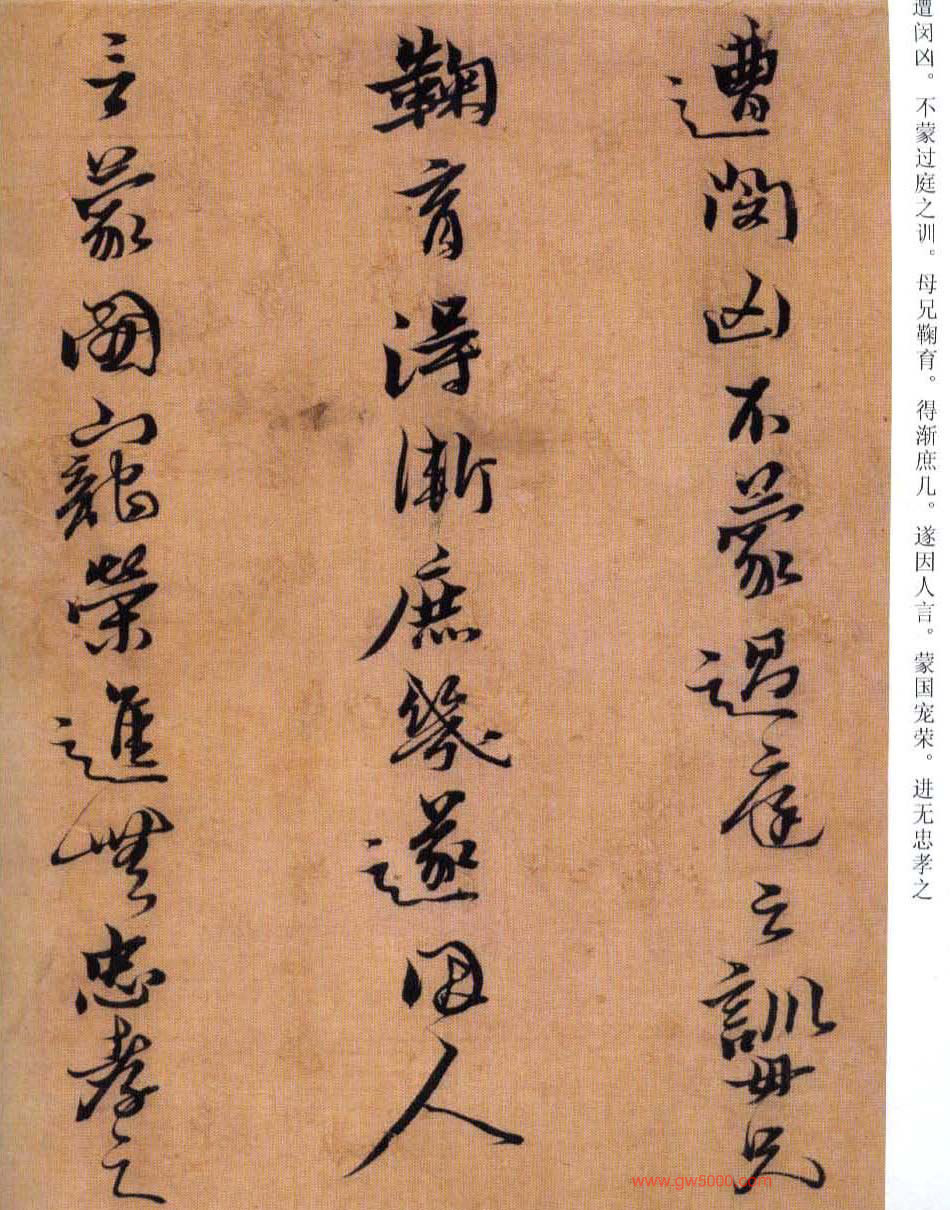 遭闵凶。不蒙过庭之训。母兄鞠育。得渐庶几。遂因人言。蒙国宠荣。进无忠孝之
遭閔凶不蒙過庭之訓母兄
鞠育得漸庶幾遂因人
言蒙國寵榮進無忠孝之
www.gw5000.com